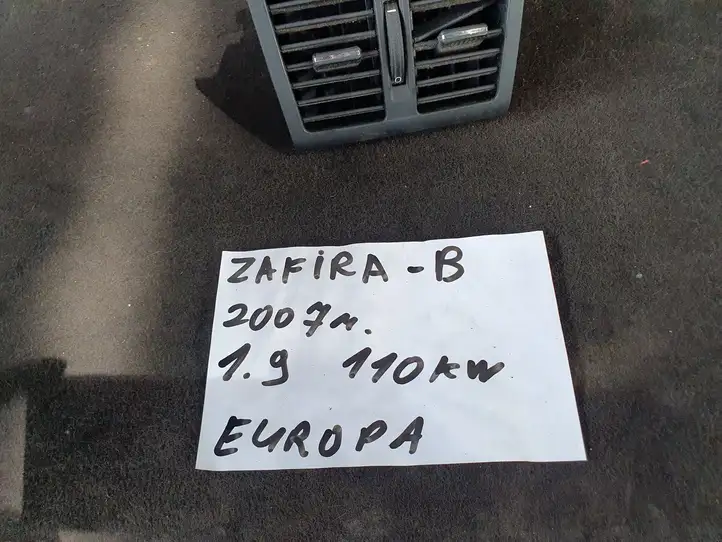 ZAFiRA-B
2007м.
1.9 110kw
EUROPA